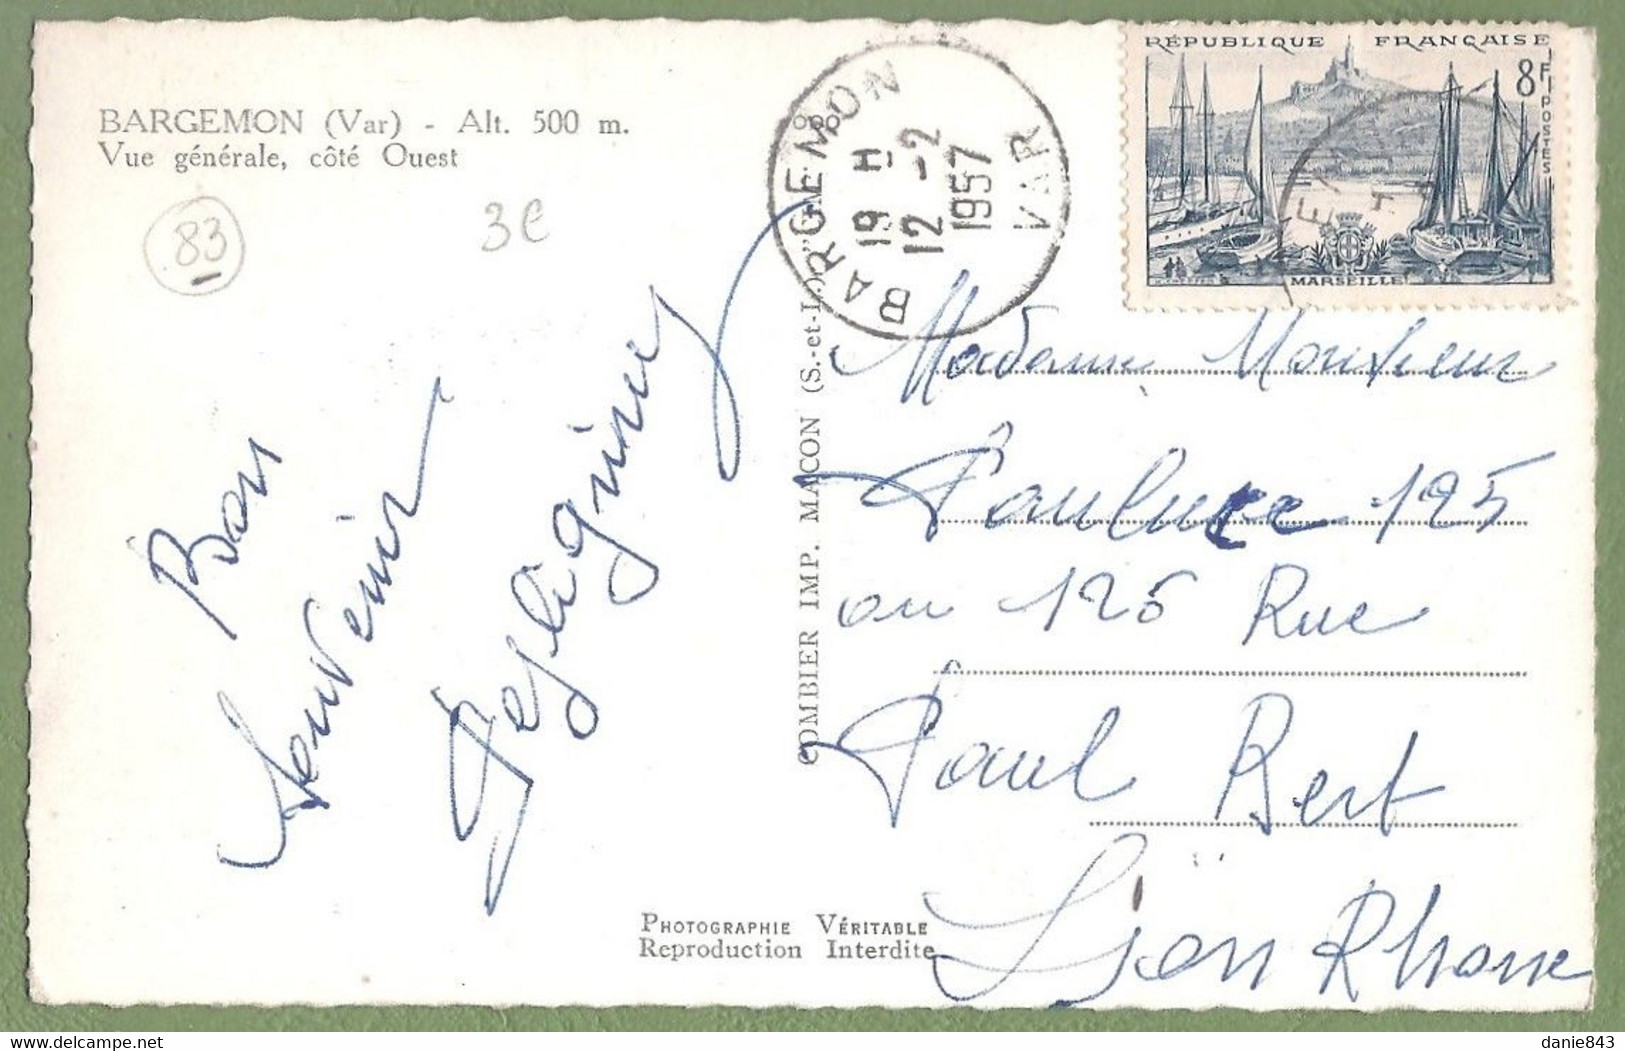 BARGEMON (Var) - Alt. 500 m.
Vue générale, côté Ouest
83
3€
Bon
Souvenir
COMBIER IMP. MACON (S.-et-L.)
BARGEMON
19 H
12 -2
1957
VAR
RÉPUBLIQUE FRANÇAISE
8F
POSTES
MARSEILLE
Madame Monsieur
125
ou 125 Rue
Paul Bert
Lyon Rhone
PHOTOGRAPHIE VÉRITABLE
Reproduction Interdite
danie843